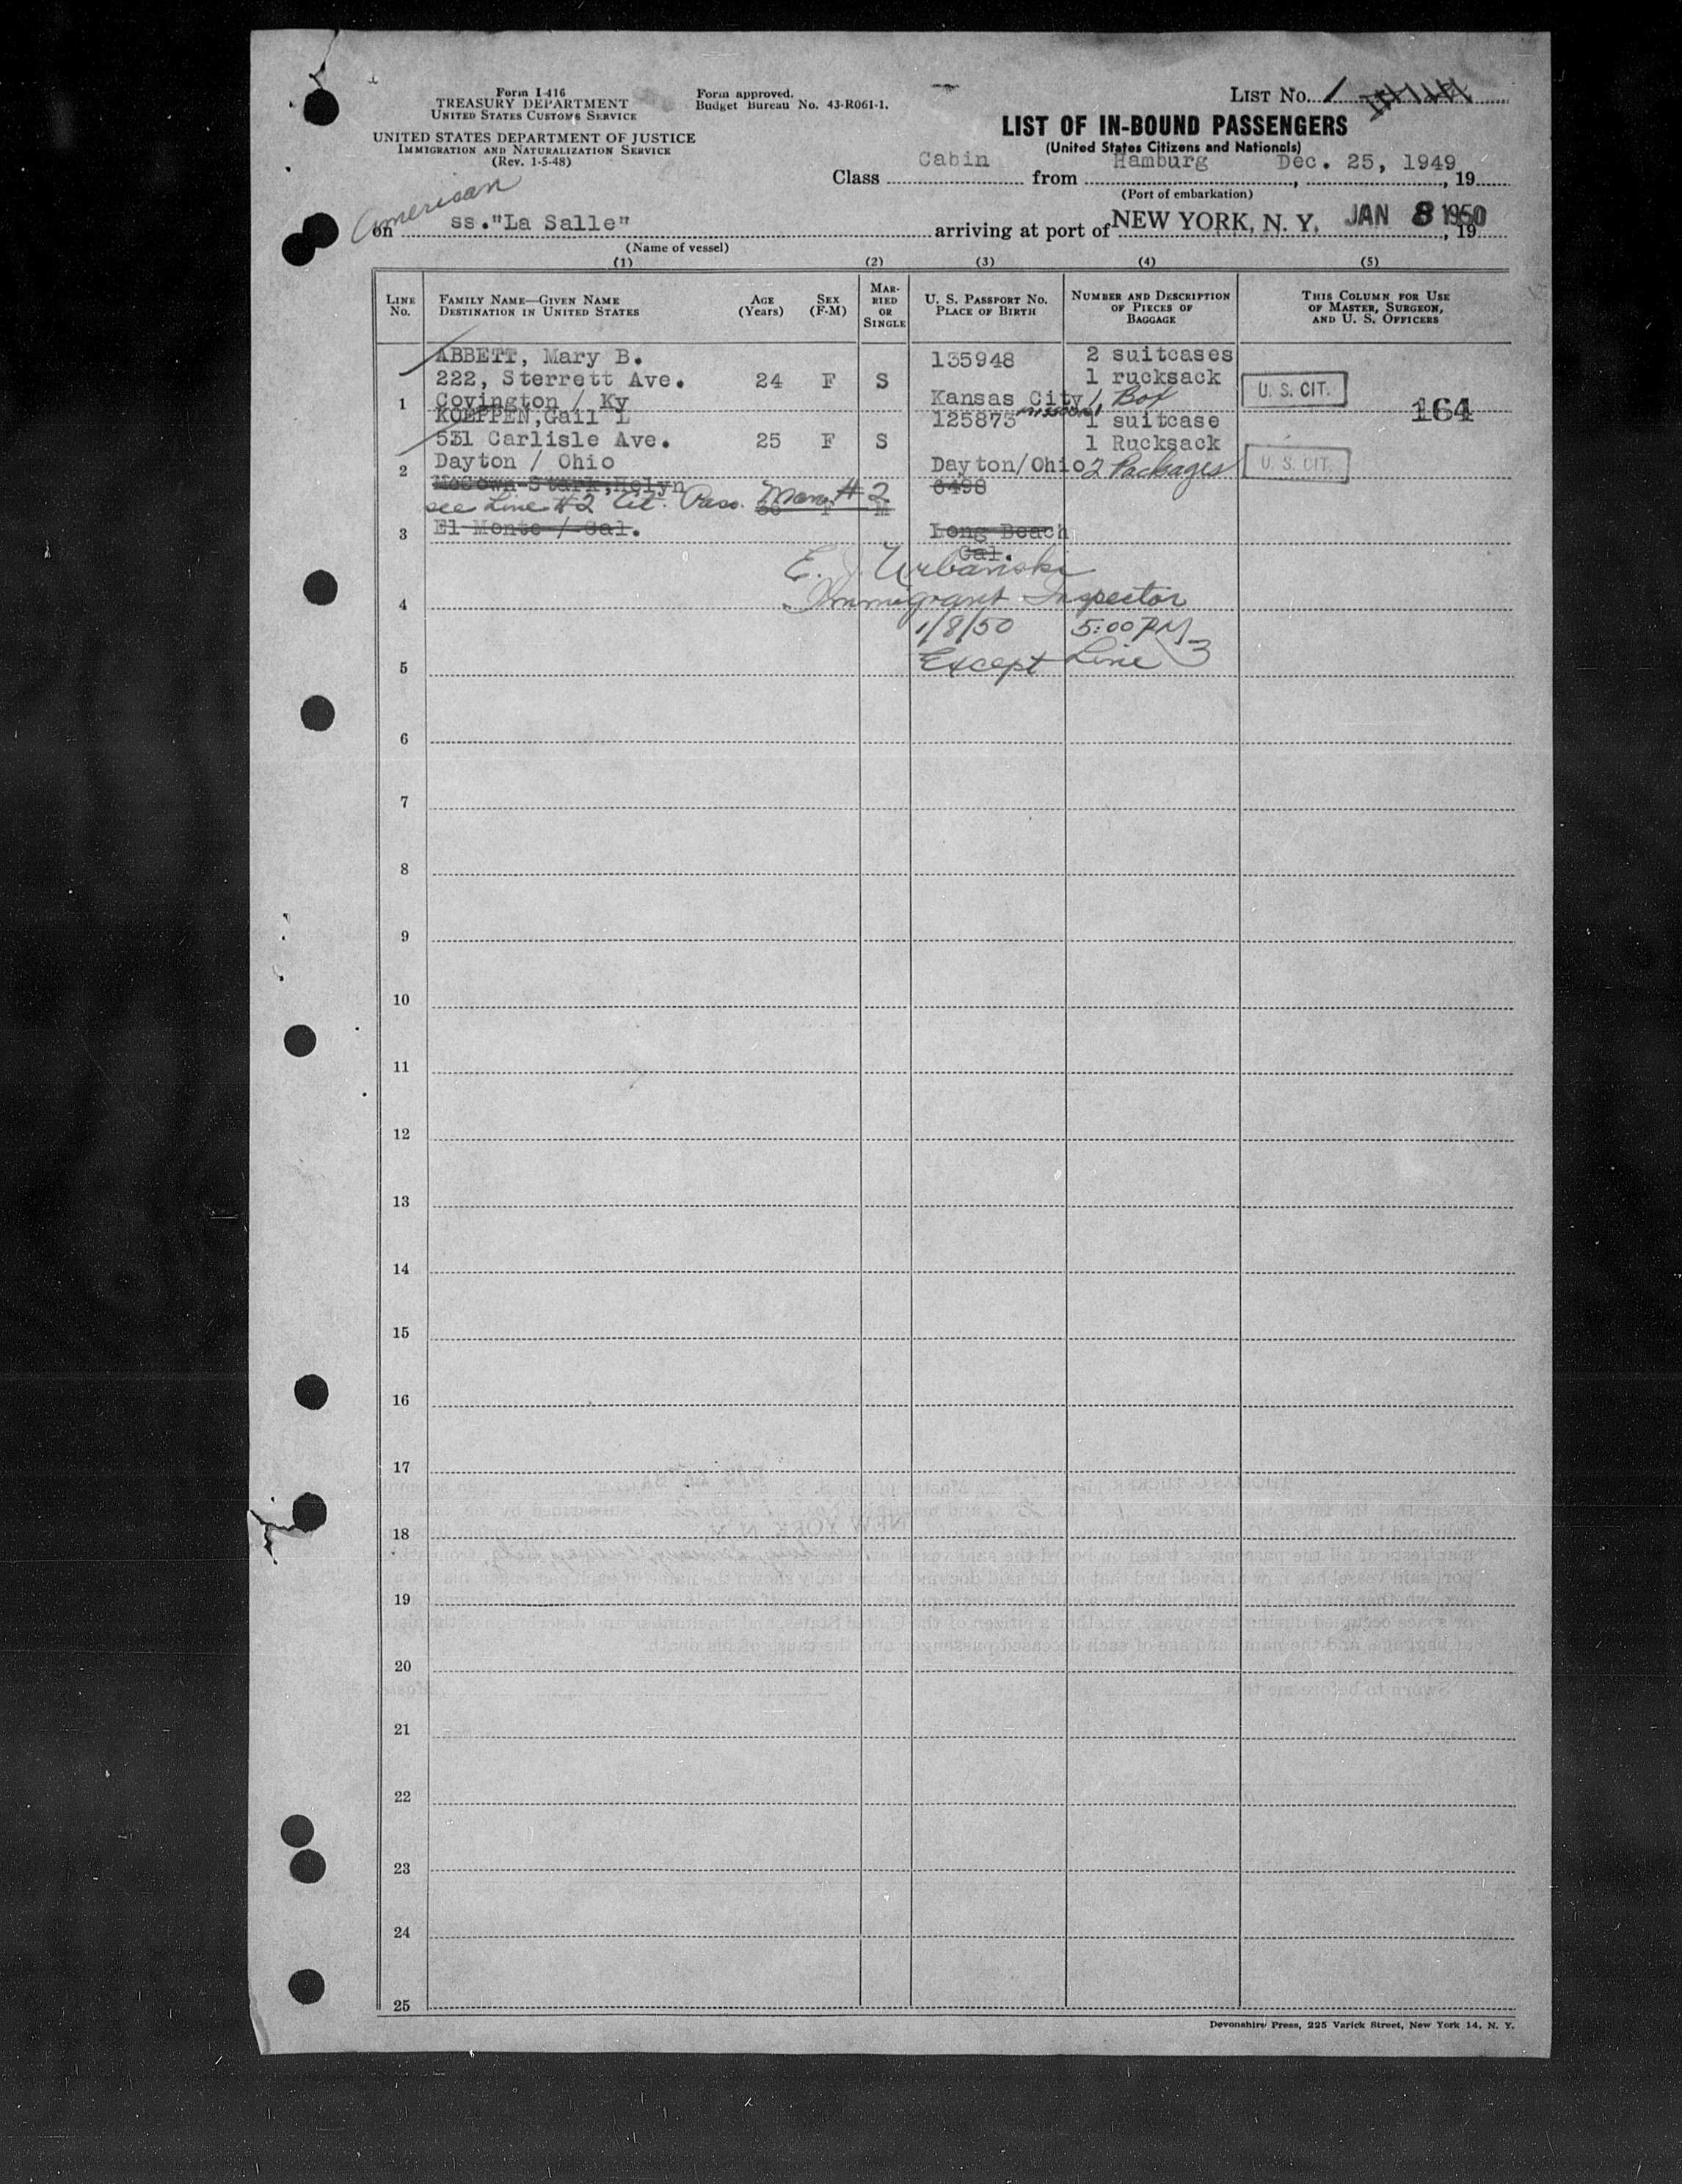 Form I-416
TREASURY DEPARTMENT
UNITED STATES CUSTOMS SERVICE
UNITED STATES DEPARTMENT OF JUSTICE
IMMIGRATION AND NATURALIZATION SERVICE
(Rev. 1-5-48)
Form approved.
Budget Bureau No. 43-R061-1.
LIST No. 1
LIST OF IN-BOUND PASSENGERS
(United States Citizens and Nationals)
Class Cabin from Hamburg, Dec. 25, 1949, 19
(Port of embarkation)
American
on ss."La Salle" arriving at port of NEW YORK, N. Y. JAN 8 1950, 19
(Name of vessel)
(1) (2) (3) (4) (5)
LINE No. FAMILY NAME—GIVEN NAME DESTINATION IN UNITED STATES AGE (Years) SEX (F-M) MARRIED OR SINGLE U. S. PASSPORT NO. PLACE OF BIRTH NUMBER AND DESCRIPTION OF PIECES OF BAGGAGE THIS COLUMN FOR USE OF MASTER, SURGEON, AND U. S. OFFICERS
ABBETT, Mary B. 135948 2 suitcases
222, Sterrett Ave. 24 F S 1 rucksack U. S. CIT.
1 Covington / Ky Kansas City Missouri 1 Box 164
KOEPPEN,Gail L 125873 1 suitcase
531 Carlisle Ave. 25 F S 1 Rucksack
2 Dayton / Ohio Dayton/Ohio 2 Packages U. S. CIT.
McGowa-Stark,Helyn 6498
see Line #2 Cit. Pass. Man. #2 F M
3 El Monte / Cal. Long Beach
Cal.
E. J. Urbanski
4 Immigrant Inspector
1/8/50 5:00 PM
5 Except Line 3
6
7
8
9
10
11
12
13
14
15
16
17
18
19
20
21
22
23
24
25
Devonshire Press, 225 Varick Street, New York 14, N. Y.